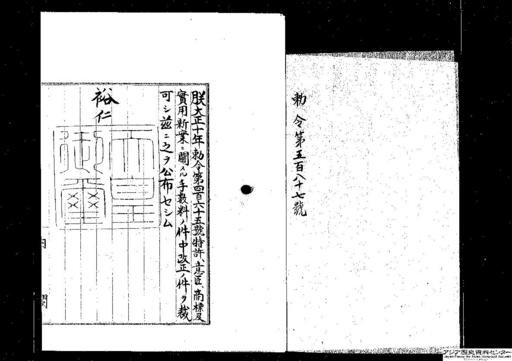 勅令第五百八十七號
朕大正十年勅令第四百六十五號特許、意匠、商標及
實用新案ニ關スル手數料ノ件中改正ノ件ヲ裁
可シ茲ニ之ヲ公布セシム
裕仁
天皇
御璽
内閣
アジア歴史資料センター